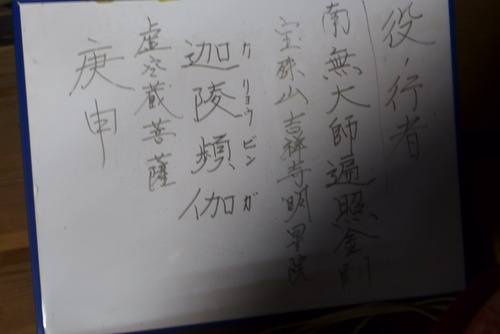 役ノ行者
南無大師遍照金剛
宝珠山吉祥寺明星院
迦陵頻伽
カリョウビンガ
虚空蔵菩薩
庚申